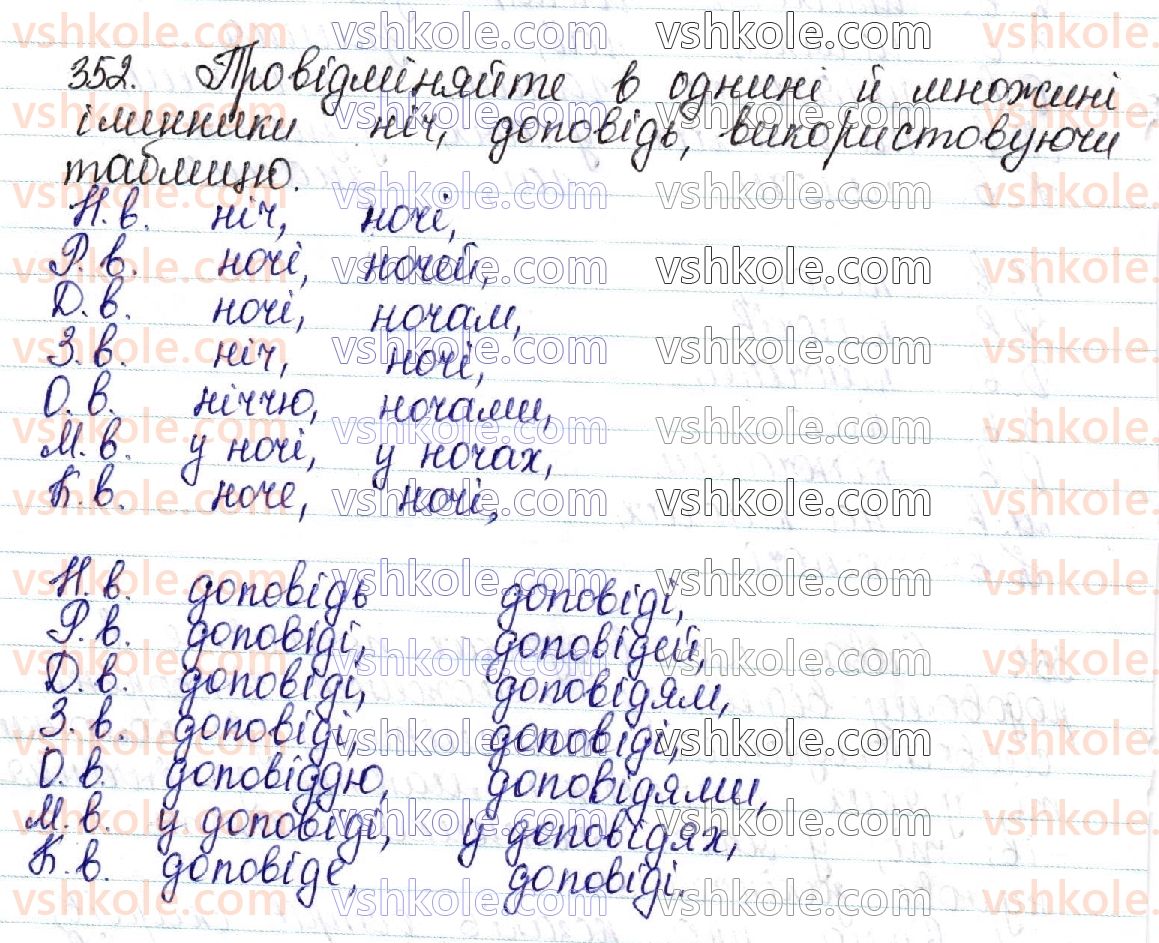 352. Провідміняйте в однині й множині
іменники ніч, доповідь, використовуючи
таблицю.
Н.в. ніч, ночі,
Р.в. ночі, ночей,
Д.в. ночі, ночам,
З.в. ніч, ночі,
О.в. ніччю, ночами,
М.в. у ночі, у ночах,
К.в. ноче, ночі,
Н.в. доповідь доповіді,
Р.в. доповіді, доповідей,
Д.в. доповіді, доповідям,
З.в. доповіді, доповіді,
О.в. доповіддю, доповідями,
М.в. у доповіді, у доповідях,
К.в. доповіде, доповіді.
vshkole.com